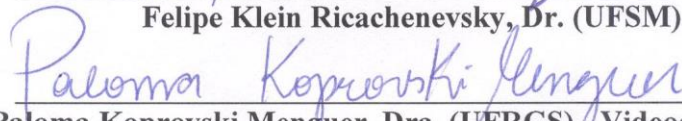 Felipe Klein Ricachenevsky, Dr. (UFSM)
Paloma Koprovski Menguer
Paloma Koprovski Menguer, Dra. (UFRGS)